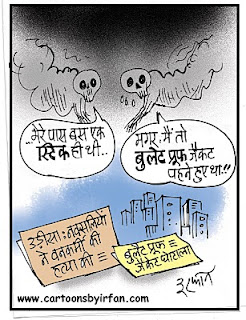 मेरे पास बस एक
स्टिक ही थी..
मगर, मैं तो
बुलेट प्रूफ जैकेट
पहने हुए था!!
उड़ीसा: नक्सलियों
ने वनकर्मी की
हत्या की
बुलेट प्रूफ
जैकेट घोटाला
इरफान
www.cartoonsbyirfan.com